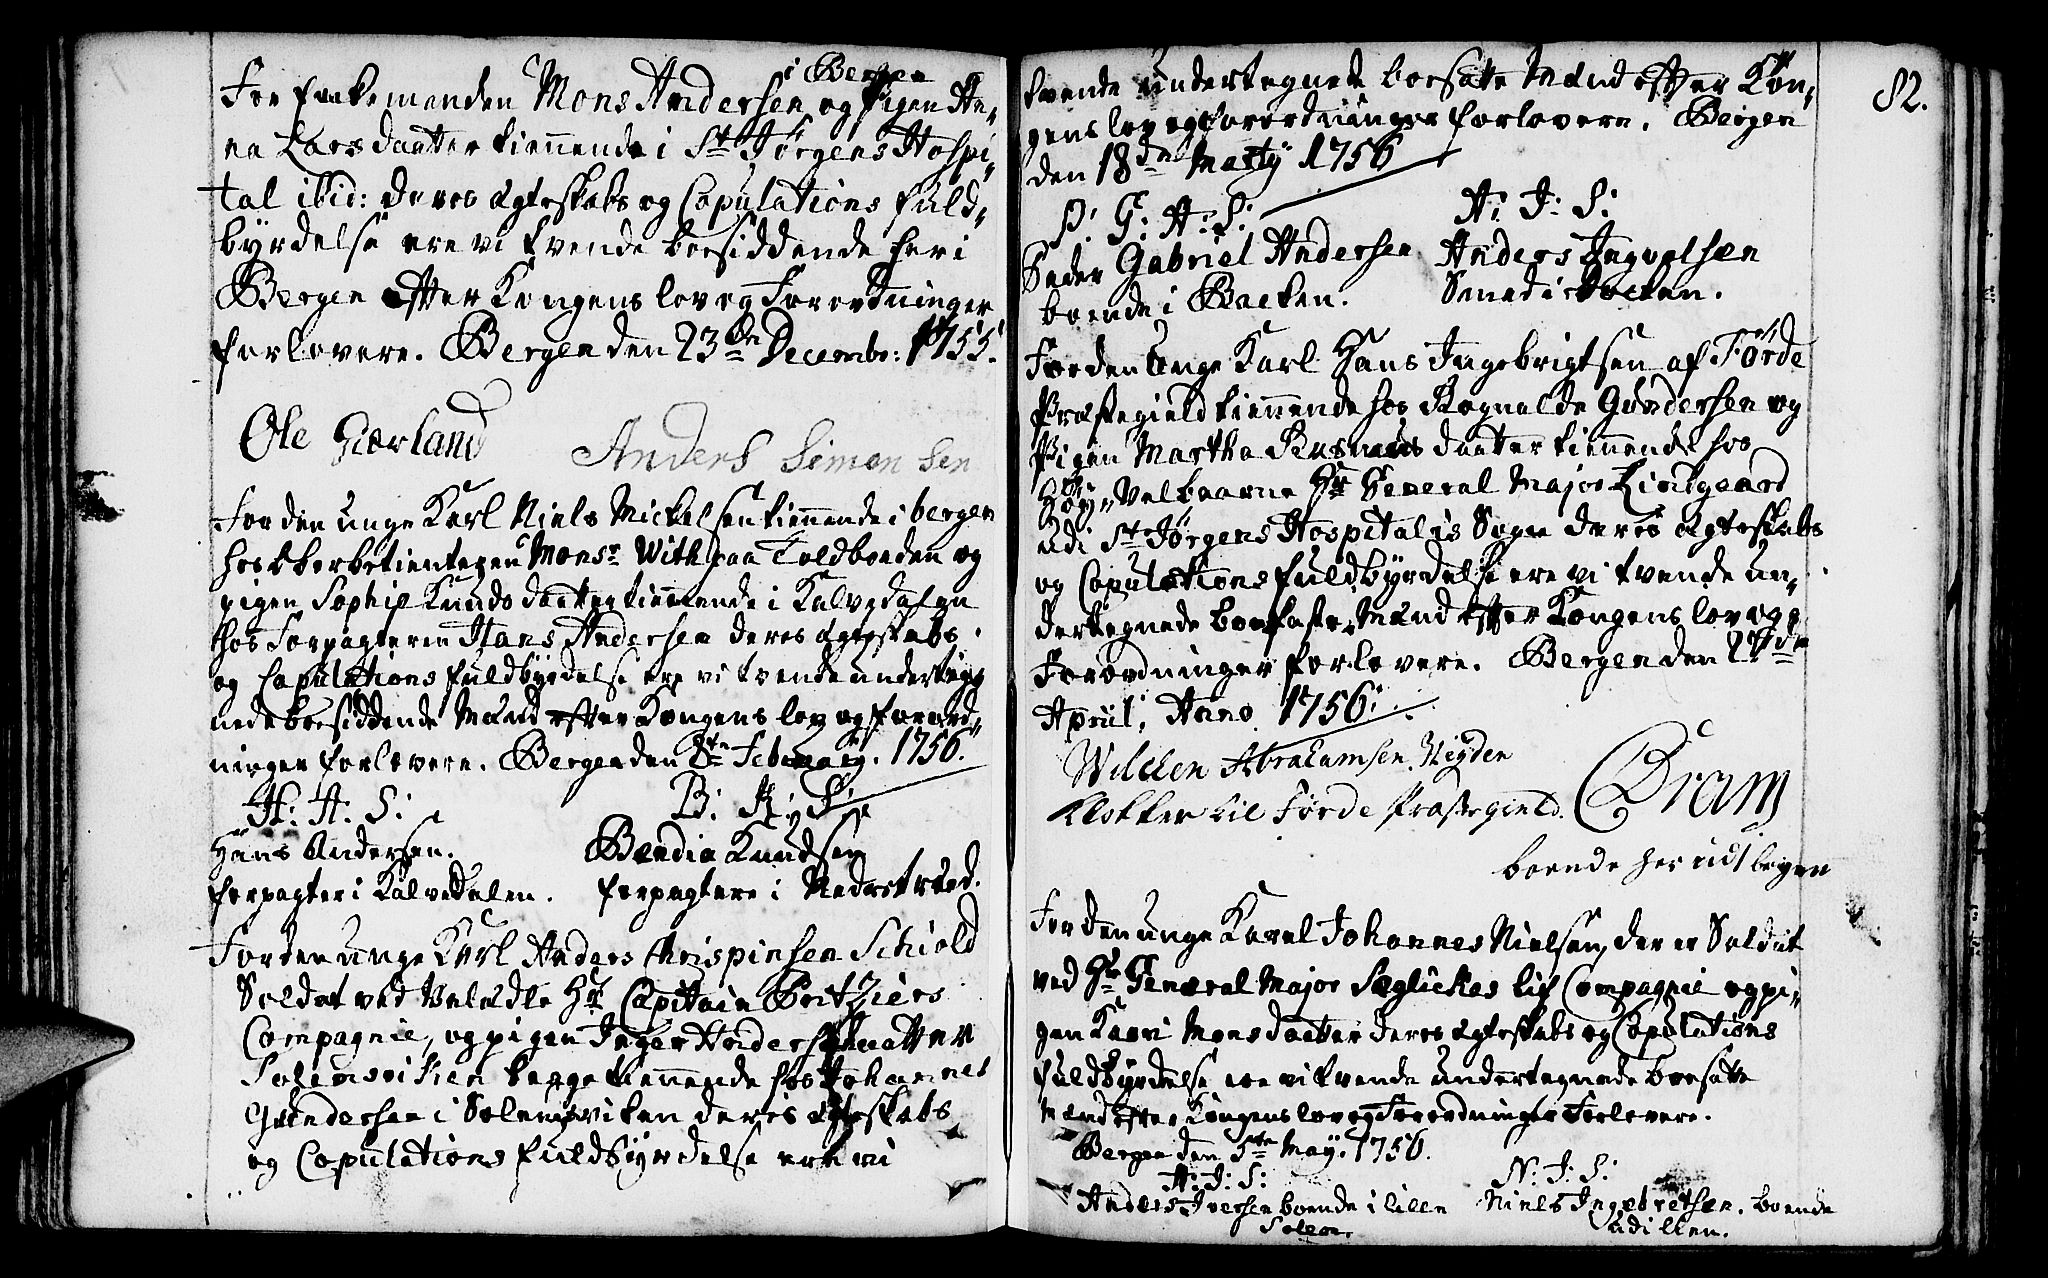 i Bergen
For Enkemanden Mons Andersen og Pigen An„
na Lars daatter tiennende i St Jörgens Hospi„
tal ibid: deres Ægteskabs og Copulations fuld„
byrdelse ere vi tvende boesiddende her i
Bergen efter Kongens lov og Forordninger
forlovere. Bergen den 23de Decembr: 1755.
Ole Giærland Anders Simonsen
For den unge Karl Niels Mickelsen tiennende i bergen
hos Monsr With paa Toldboeden og
pigen Sophie Knuds daatter tiennende i Kalvedalen
hos Forpagteren Hans Andersen deres Ægteskabs
og Copulations fuldbyrdelse ere vi tvende underteg„
nede boesiddende Mænd efter Kongens lov og forord„
ninger forlovere. Bergen den 8de Februarij. 1756.
H: A: S: B: K: S:
Hans Andersen. Bendix Knudsen
forpagter i Kalvedalen. forpagtere i
For den unge Karl Anders Chrispinsen Schiold
Soldat ved Velædle Hr Capitain Fritzners
Compagnie, og pigen Inger Anders daatter
Solemsviken begge tiennende hos Johannes
Gundersen i Solemsviken deres Ægteskabs
og Copulations fuldbyrdelse ere vi
82.
tvende undertegnede boesatte Mænd efter Kon„
gens lov og forordninger forlovere. Bergen
den 18de Martij 1756
G: A: S: A: I: S:
Gabriel Andersen Anders Ingvolsen
boende i Backen.
For den unge Karl Hans Ingebrigtsen af Förde
Præstegield tiennende hos Rognalde Gundersen og
Pigen Martha Rasmus daatter tiennende hos
Höy„Velbaarne Hr General Major Lindgaard
udi St Jörgens Hospitalis Sogn deres Ægteskabs
og Copulations fuldbyrdelse ere vi tvende un„
dertegnede boefaste Mænd efter Kongens lov og
Forordninger forlovere. Bergen den 27de
Apriil, Anno 1756.
Willum Abrahamsen Heyden
Klokker til Förde Præstegield. Bram
boende her udi bergen
For den unge Karel Johannes Nielsen, der er Soldat
ved Hr General Major Seglickes lif Compagnie og pi„
gen Kari Mons daatter deres Ægteskabs og Copulations
fuldbyrdelse ere vi tvende undertegnede boesatte
Mænd efter Kongens lov og Forordninger Forlovere.
Bergen den 5te May: 1756.
A: I: S: N: I: S:
Anders Iversen boende i lille Niels Ingebretsen. boende